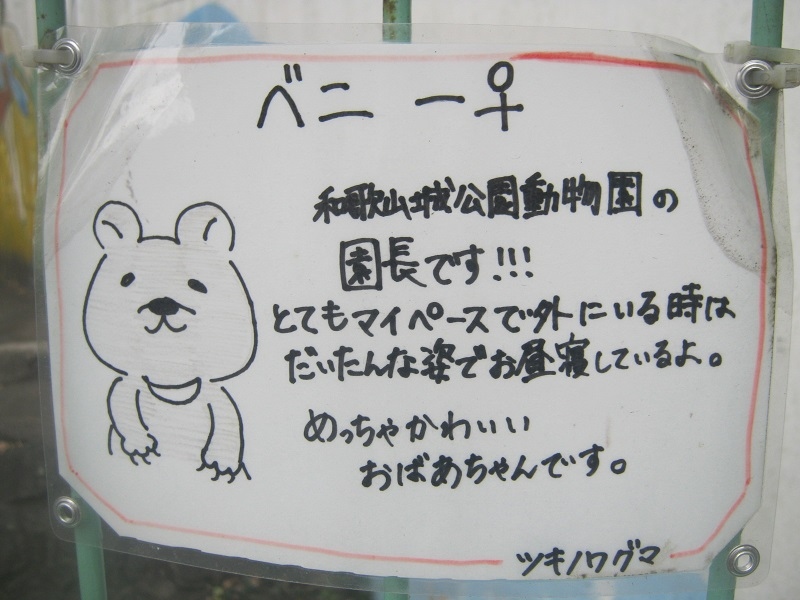 ベニー ♀
和歌山城公園動物園の
園長です!!!
とてもマイペースで外にいる時は
だいたんな姿でお昼寝しているよ。
めっちゃかわいい
おばあちゃんです。
ツキノワグマ